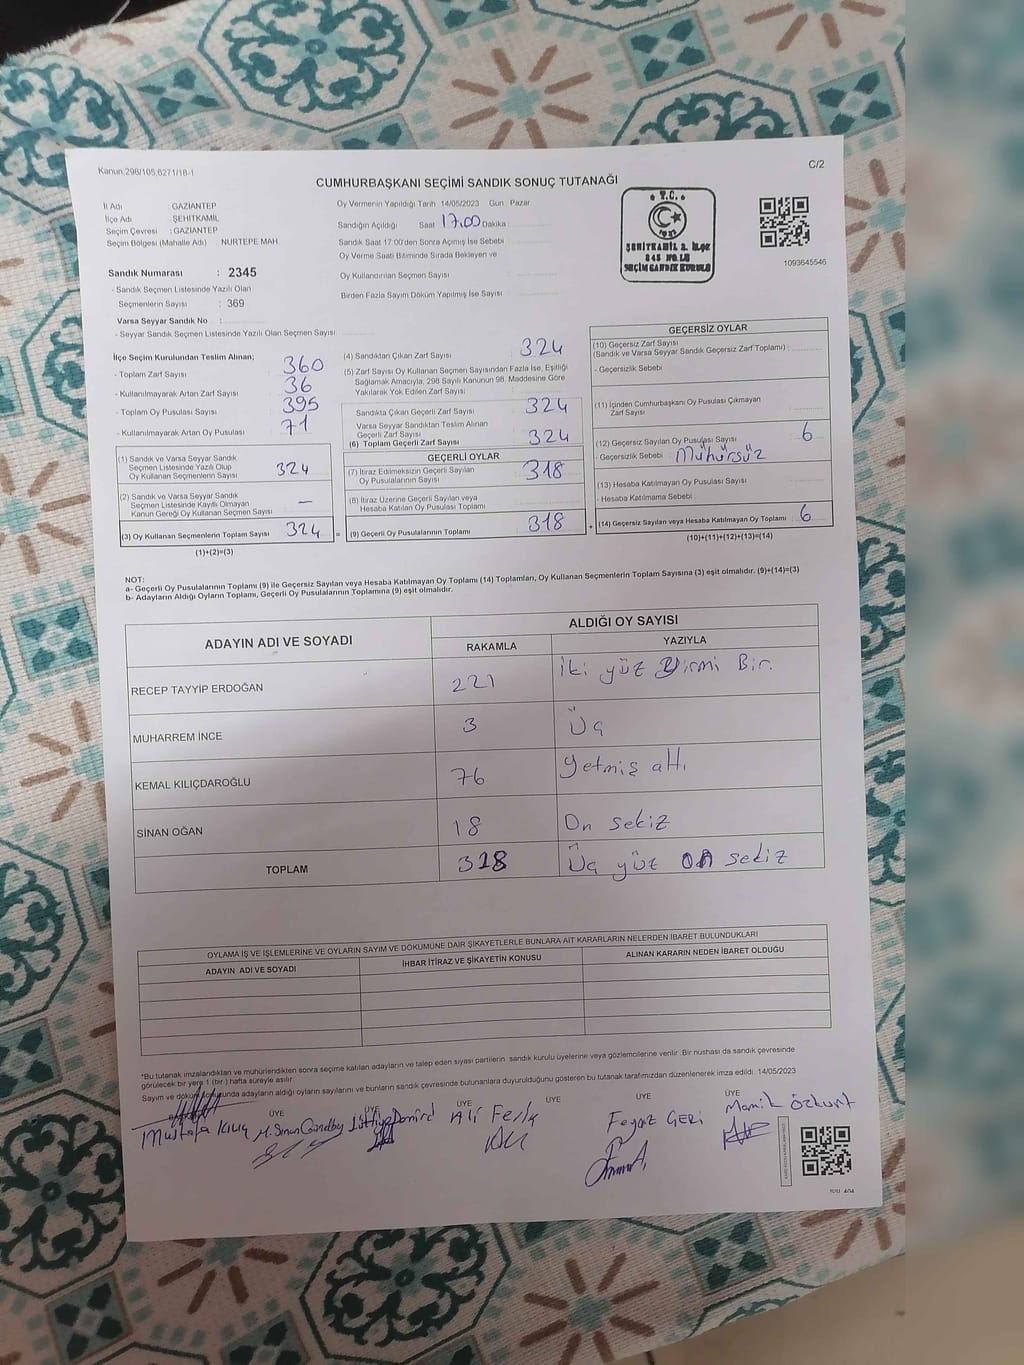 Kanun:298/105,6271/18-1
C/2
CUMHURBAŞKANI SEÇİMİ SANDIK SONUÇ TUTANAĞI
İl Adı : GAZİANTEP
İlçe Adı : ŞEHİTKAMİL
Seçim Çevresi : GAZİANTEP
Seçim Bölgesi (Mahalle Adı) : NURTEPE MAH.
Sandık Numarası : 2345
- Sandık Seçmen Listesinde Yazılı Olan
Seçmenlerin Sayısı : 369
Varsa Seyyar Sandık No :
- Seyyar Sandık Seçmen Listesinde Yazılı Olan Seçmen Sayısı
Oy Vermenin Yapıldığı Tarih 14/05/2023 Gün Pazar
Sandığın Açıldığı Saat 17.00 Dakika
Sandık Saat 17:00'den Sonra Açımış İse Sebebi
Oy Verme Saati Bitiminde Sırada Bekleyen ve
Oy Kullandırılan Seçmen Sayısı
Birden Fazla Sayım Döküm Yapılmış İse Sayısı
T.C.
ŞEHİTKAMİL 2. İLÇE
SEÇİM SANDIK KURULU
1093645546
İlçe Seçim Kurulundan Teslim Alınan;
- Toplam Zarf Sayısı 360
- Kullanılmayarak Artan Zarf Sayısı 36
- Toplam Oy Pusulası Sayısı 395
- Kullanılmayarak Artan Oy Pusulası 71
(1) Sandık ve Varsa Seyyar Sandık
Seçmen Listesinde Yazılı Olup
Oy Kullanan Seçmenlerin Sayısı 324
(2) Sandık ve Varsa Seyyar Sandık
Seçmen Listesinde Kayıtlı Olmayan
Kanun Gereği Oy Kullanan Seçmen Sayısı —
(3) Oy Kullanan Seçmenlerin Toplam Sayısı 324 =
(1)+(2)=(3)
(4) Sandıktan Çıkan Zarf Sayısı 324
(5) Zarf Sayısı Oy Kullanan Seçmen Sayısından Fazla İse, Eşitliği
Sağlamak Amacıyla, 298 Sayılı Kanunun 98. Maddesine Göre
Yakılarak Yok Edilen Zarf Sayısı
Sandıkta Çıkan Geçerli Zarf Sayısı 324
Varsa Seyyar Sandıktan Teslim Alınan
Geçerli Zarf Sayısı
(6) Toplam Geçerli Zarf Sayısı 324
GEÇERLİ OYLAR
(7) İtiraz Edilmeksizin Geçerli Sayılan
Oy Pusulalarının Sayısı 318
(8) İtiraz Üzerine Geçerli Sayılan veya
Hesaba Katılan Oy Pusulası Toplamı
(9) Geçerli Oy Pusulalarının Toplamı 318 +
GEÇERSİZ OYLAR
(10) Geçersiz Zarf Sayısı
(Sandık ve Varsa Seyyar Sandık Geçersiz Zarf Toplamı)
- Geçersizlik Sebebi
(11) İçinden Cumhurbaşkanı Oy Pusulası Çıkmayan
Zarf Sayısı
(12) Geçersiz Sayılan Oy Pusulası Sayısı 6
- Geçersizlik Sebebi Mühürsüz
(13) Hesaba Katılmayan Oy Pusulası Sayısı
- Hesaba Katılmama Sebebi
(14) Geçersiz Sayılan veya Hesaba Katılmayan Oy Toplamı 6
(10)+(11)+(12)+(13)=(14)
NOT:
a- Geçerli Oy Pusulalarının Toplamı (9) ile Geçersiz Sayılan veya Hesaba Katılmayan Oy Toplamı (14) Toplamları, Oy Kullanan Seçmenlerin Toplam Sayısına (3) eşit olmalıdır. (9)+(14)=(3)
b- Adayların Aldığı Oyların Toplamı, Geçerli Oy Pusulalarının Toplamına (9) eşit olmalıdır.
ADAYIN ADI VE SOYADI
ALDIĞI OY SAYISI
RAKAMLA YAZIYLA
RECEP TAYYİP ERDOĞAN 221 İki yüz Yirmi Bir.
MUHARREM İNCE 3 Üç
KEMAL KILIÇDAROĞLU 76 Yetmiş altı
SİNAN OĞAN 18 On sekiz
TOPLAM 318 Üç yüz on sekiz
OYLAMA İŞ VE İŞLEMLERİNE VE OYLARIN SAYIM VE DÖKÜMÜNE DAİR ŞİKAYETLERLE BUNLARA AİT KARARLARIN NELERDEN İBARET BULUNDUKLARI
ADAYIN ADI VE SOYADI İHBAR İTİRAZ VE ŞİKAYETİN KONUSU ALINAN KARARIN NEDEN İBARET OLDUĞU
*Bu tutanak imzalandıktan ve mühürlendikten sonra seçime katılan adayların ve talep eden siyasi partilerin sandık kurulu üyelerine veya gözlemcilerine verilir. Bir nüshası da sandık çevresinde
görülecek bir yere 1 (bir) hafta süreyle asılır.
Sayım ve döküm sonunda adayların aldığı oyların sayılarını ve bunların sandık çevresinde bulunanlara duyurulduğunu gösteren bu tutanak tarafımızdan düzenlenerek imza edildi. 14/05/2023
ÜYE ÜYE ÜYE ÜYE ÜYE ÜYE
Mustafa Kılıç Ali Feyaz GERİ Özkurt